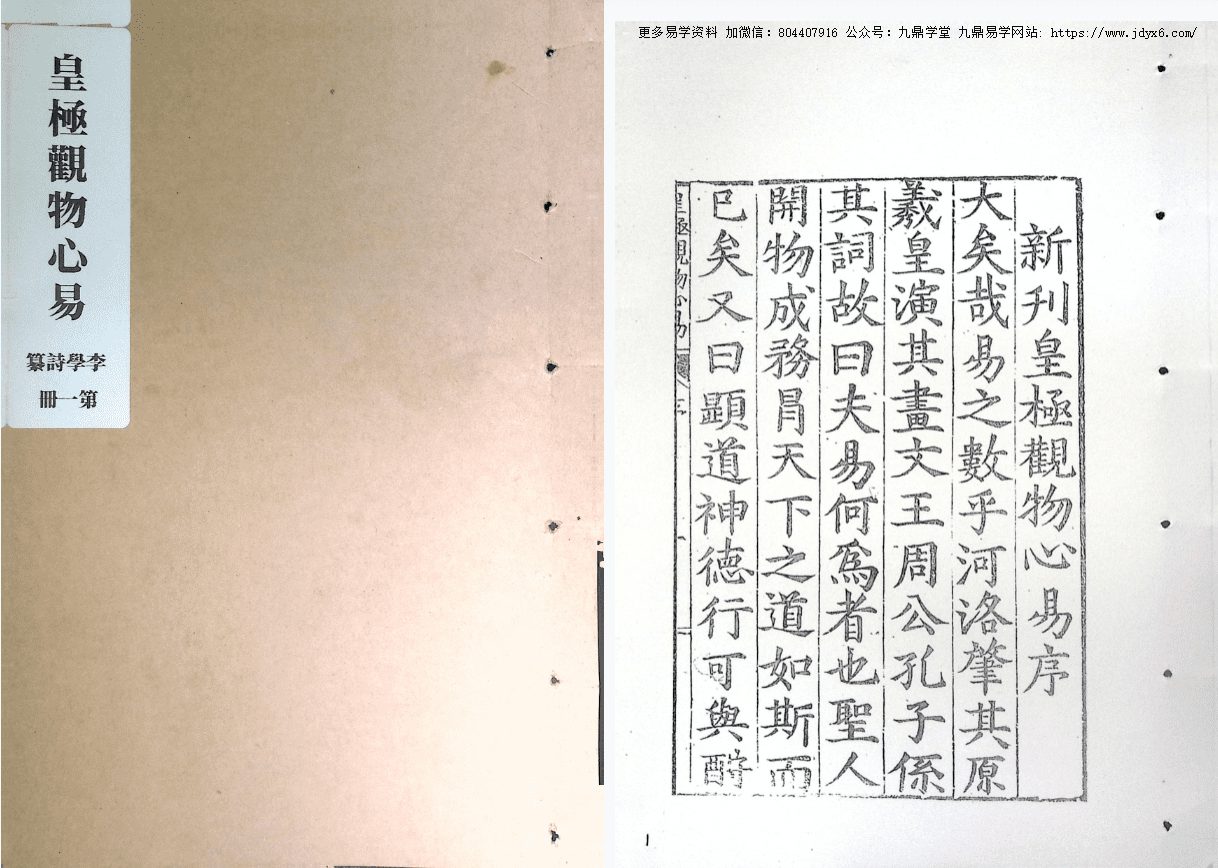 皇極觀物心易
李學詩纂
第一冊
更多易学资料 加微信：804407916 公众号：九鼎学堂 九鼎易学网站：https://www.jdyx6.com/
新刊皇極觀物心易序
大矣哉易之數乎河洛肇其原
羲皇演其畫文王周公孔子係
其詞故曰夫易何爲者也聖人
開物成務冐天下之道如斯而
已矣又曰顕道神德行可與酧
皇極觀物心易
1